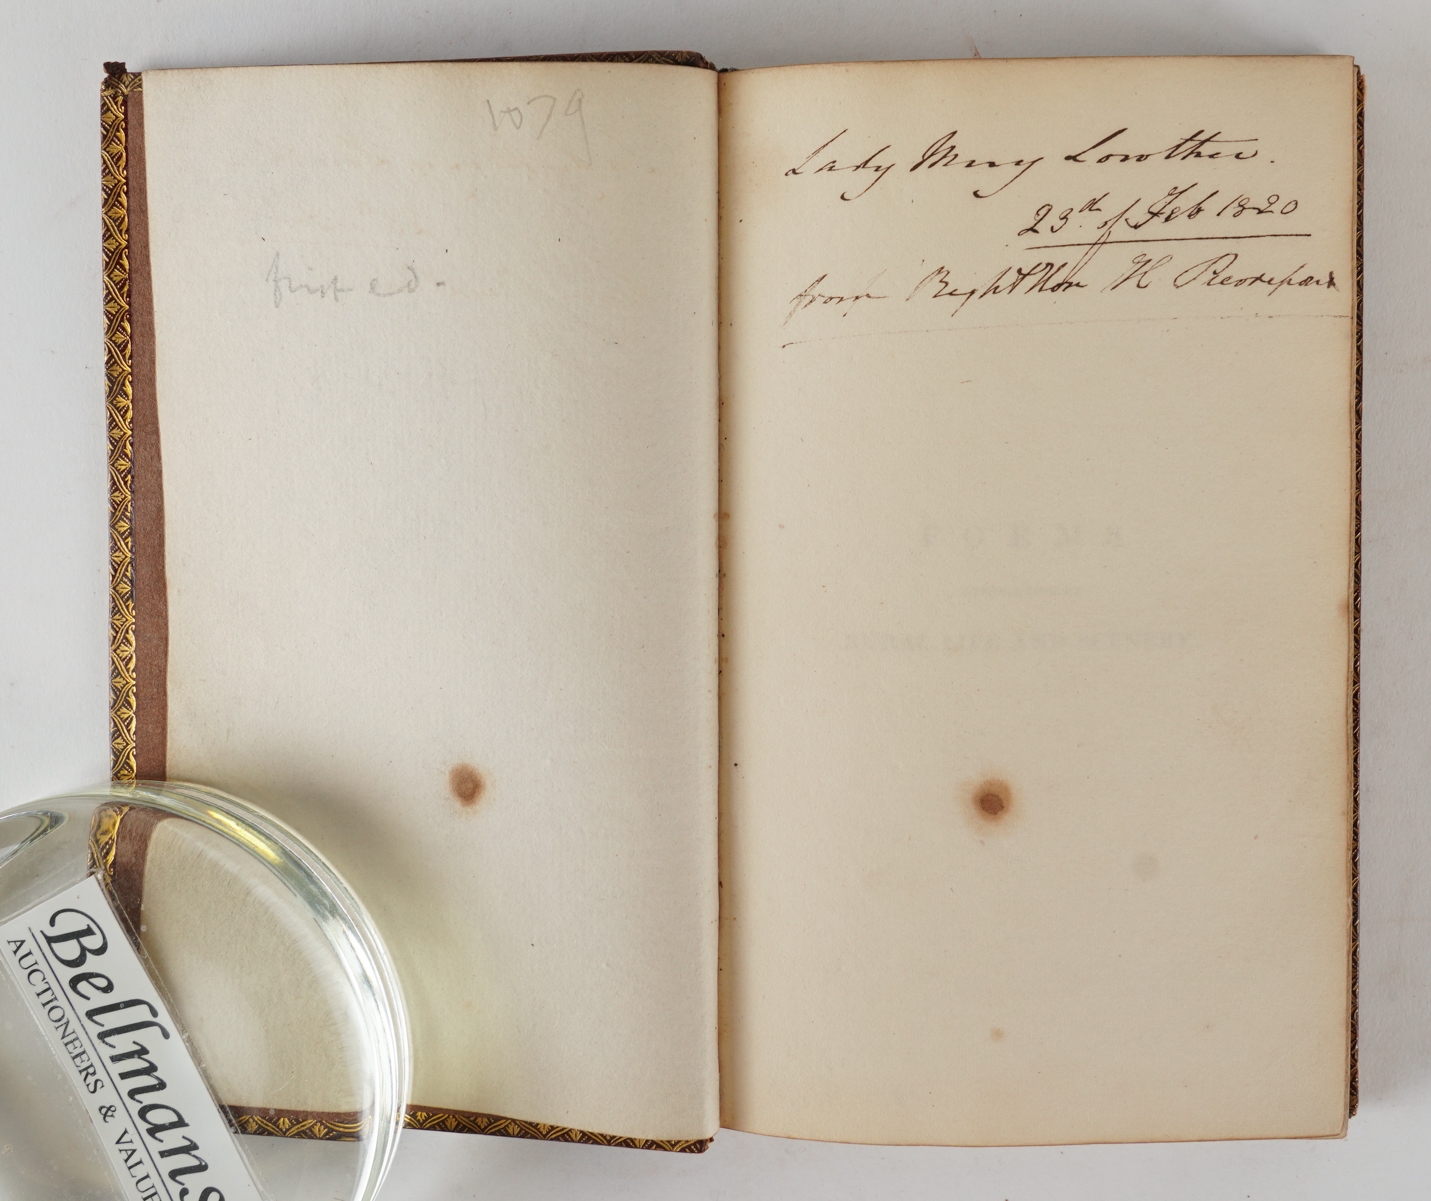 1079
first ed.
Lady Mary Lowther.
23d. of Feb 1820
from Right Hon H Pierrepont
POEMS
RURAL LIFE AND SCENERY
Bellmans
AUCTIONEERS & VALUE